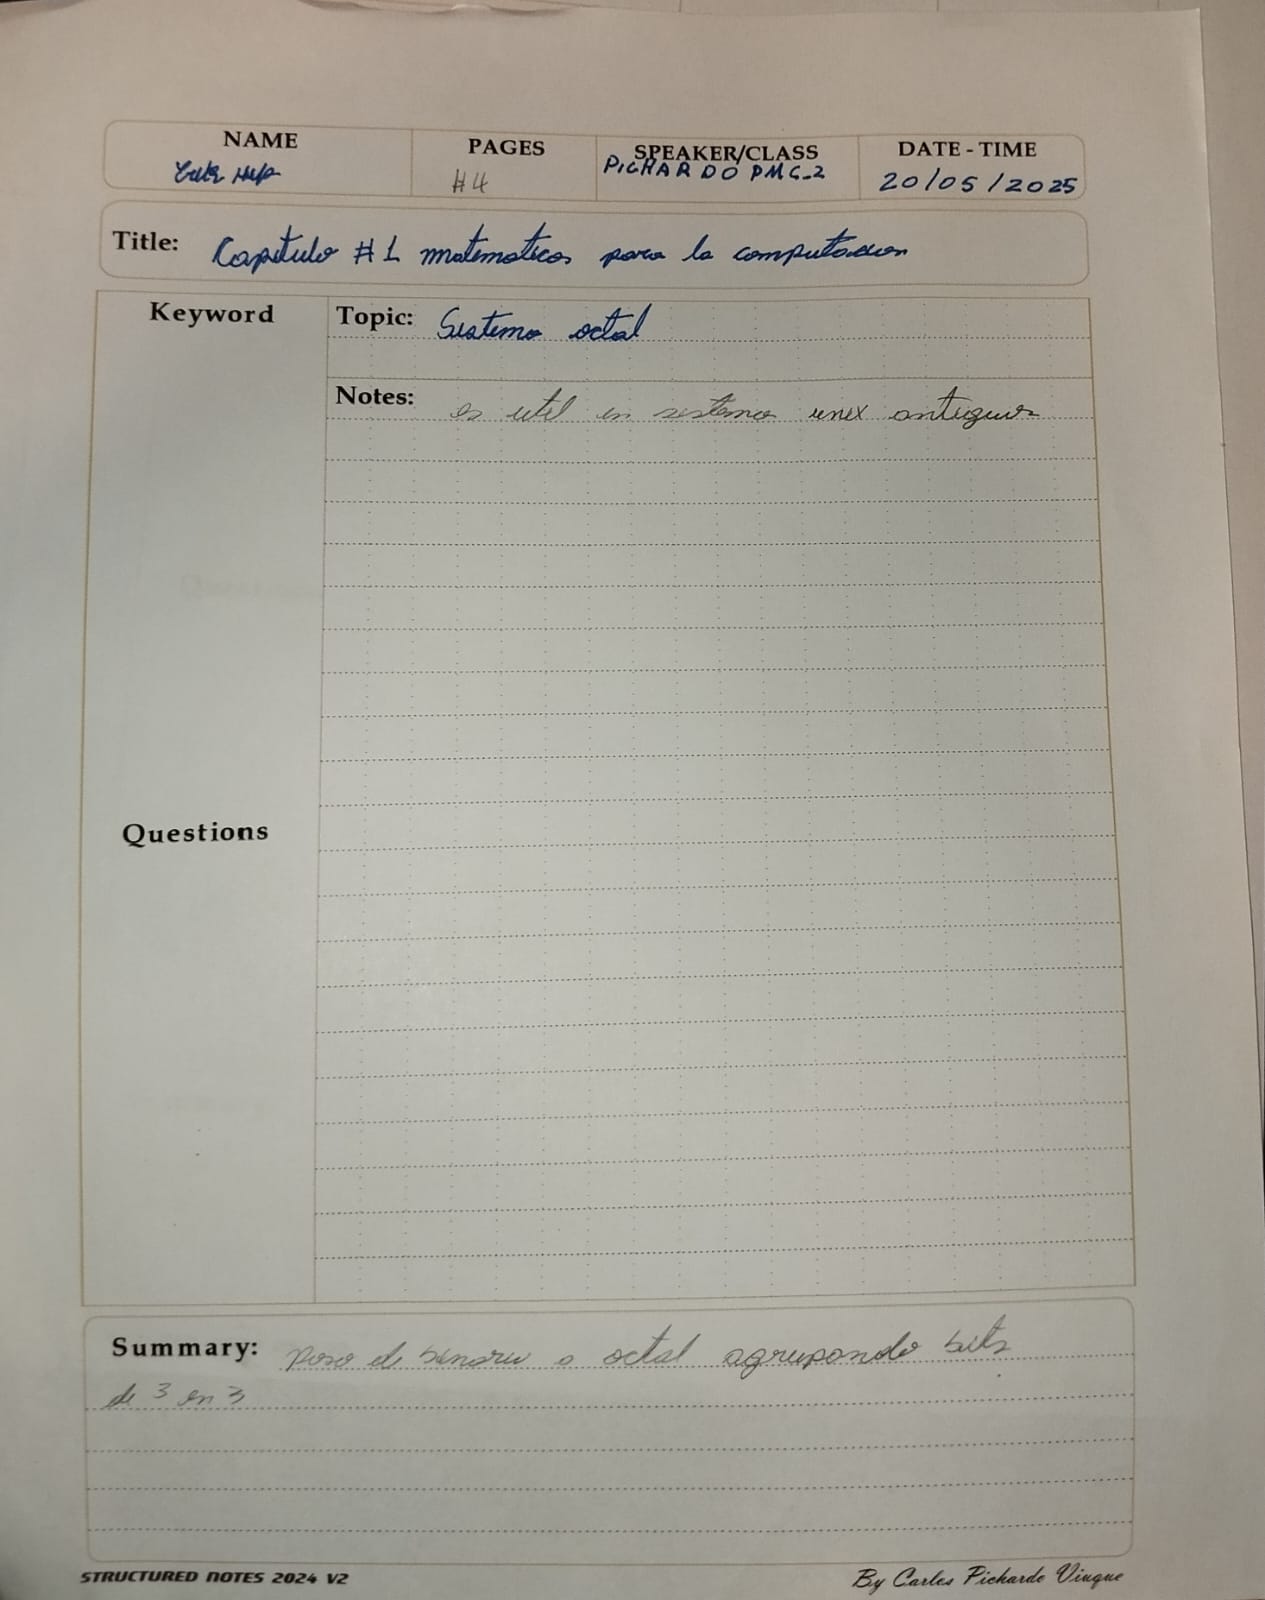 NAME PAGES SPEAKER/CLASS DATE - TIME
#4 PICHARDO PMC-2 20/05/2025
Title: Capitulo #1 matematicas para la computacion
Keyword Topic: Sistema octal
Notes: es util en sistemas unix antiguos
Questions
Summary: paso de binario a octal agrupando bits
de 3 en 3
STRUCTURED NOTES 2024 V2 By Carlos Pichardo Viuque